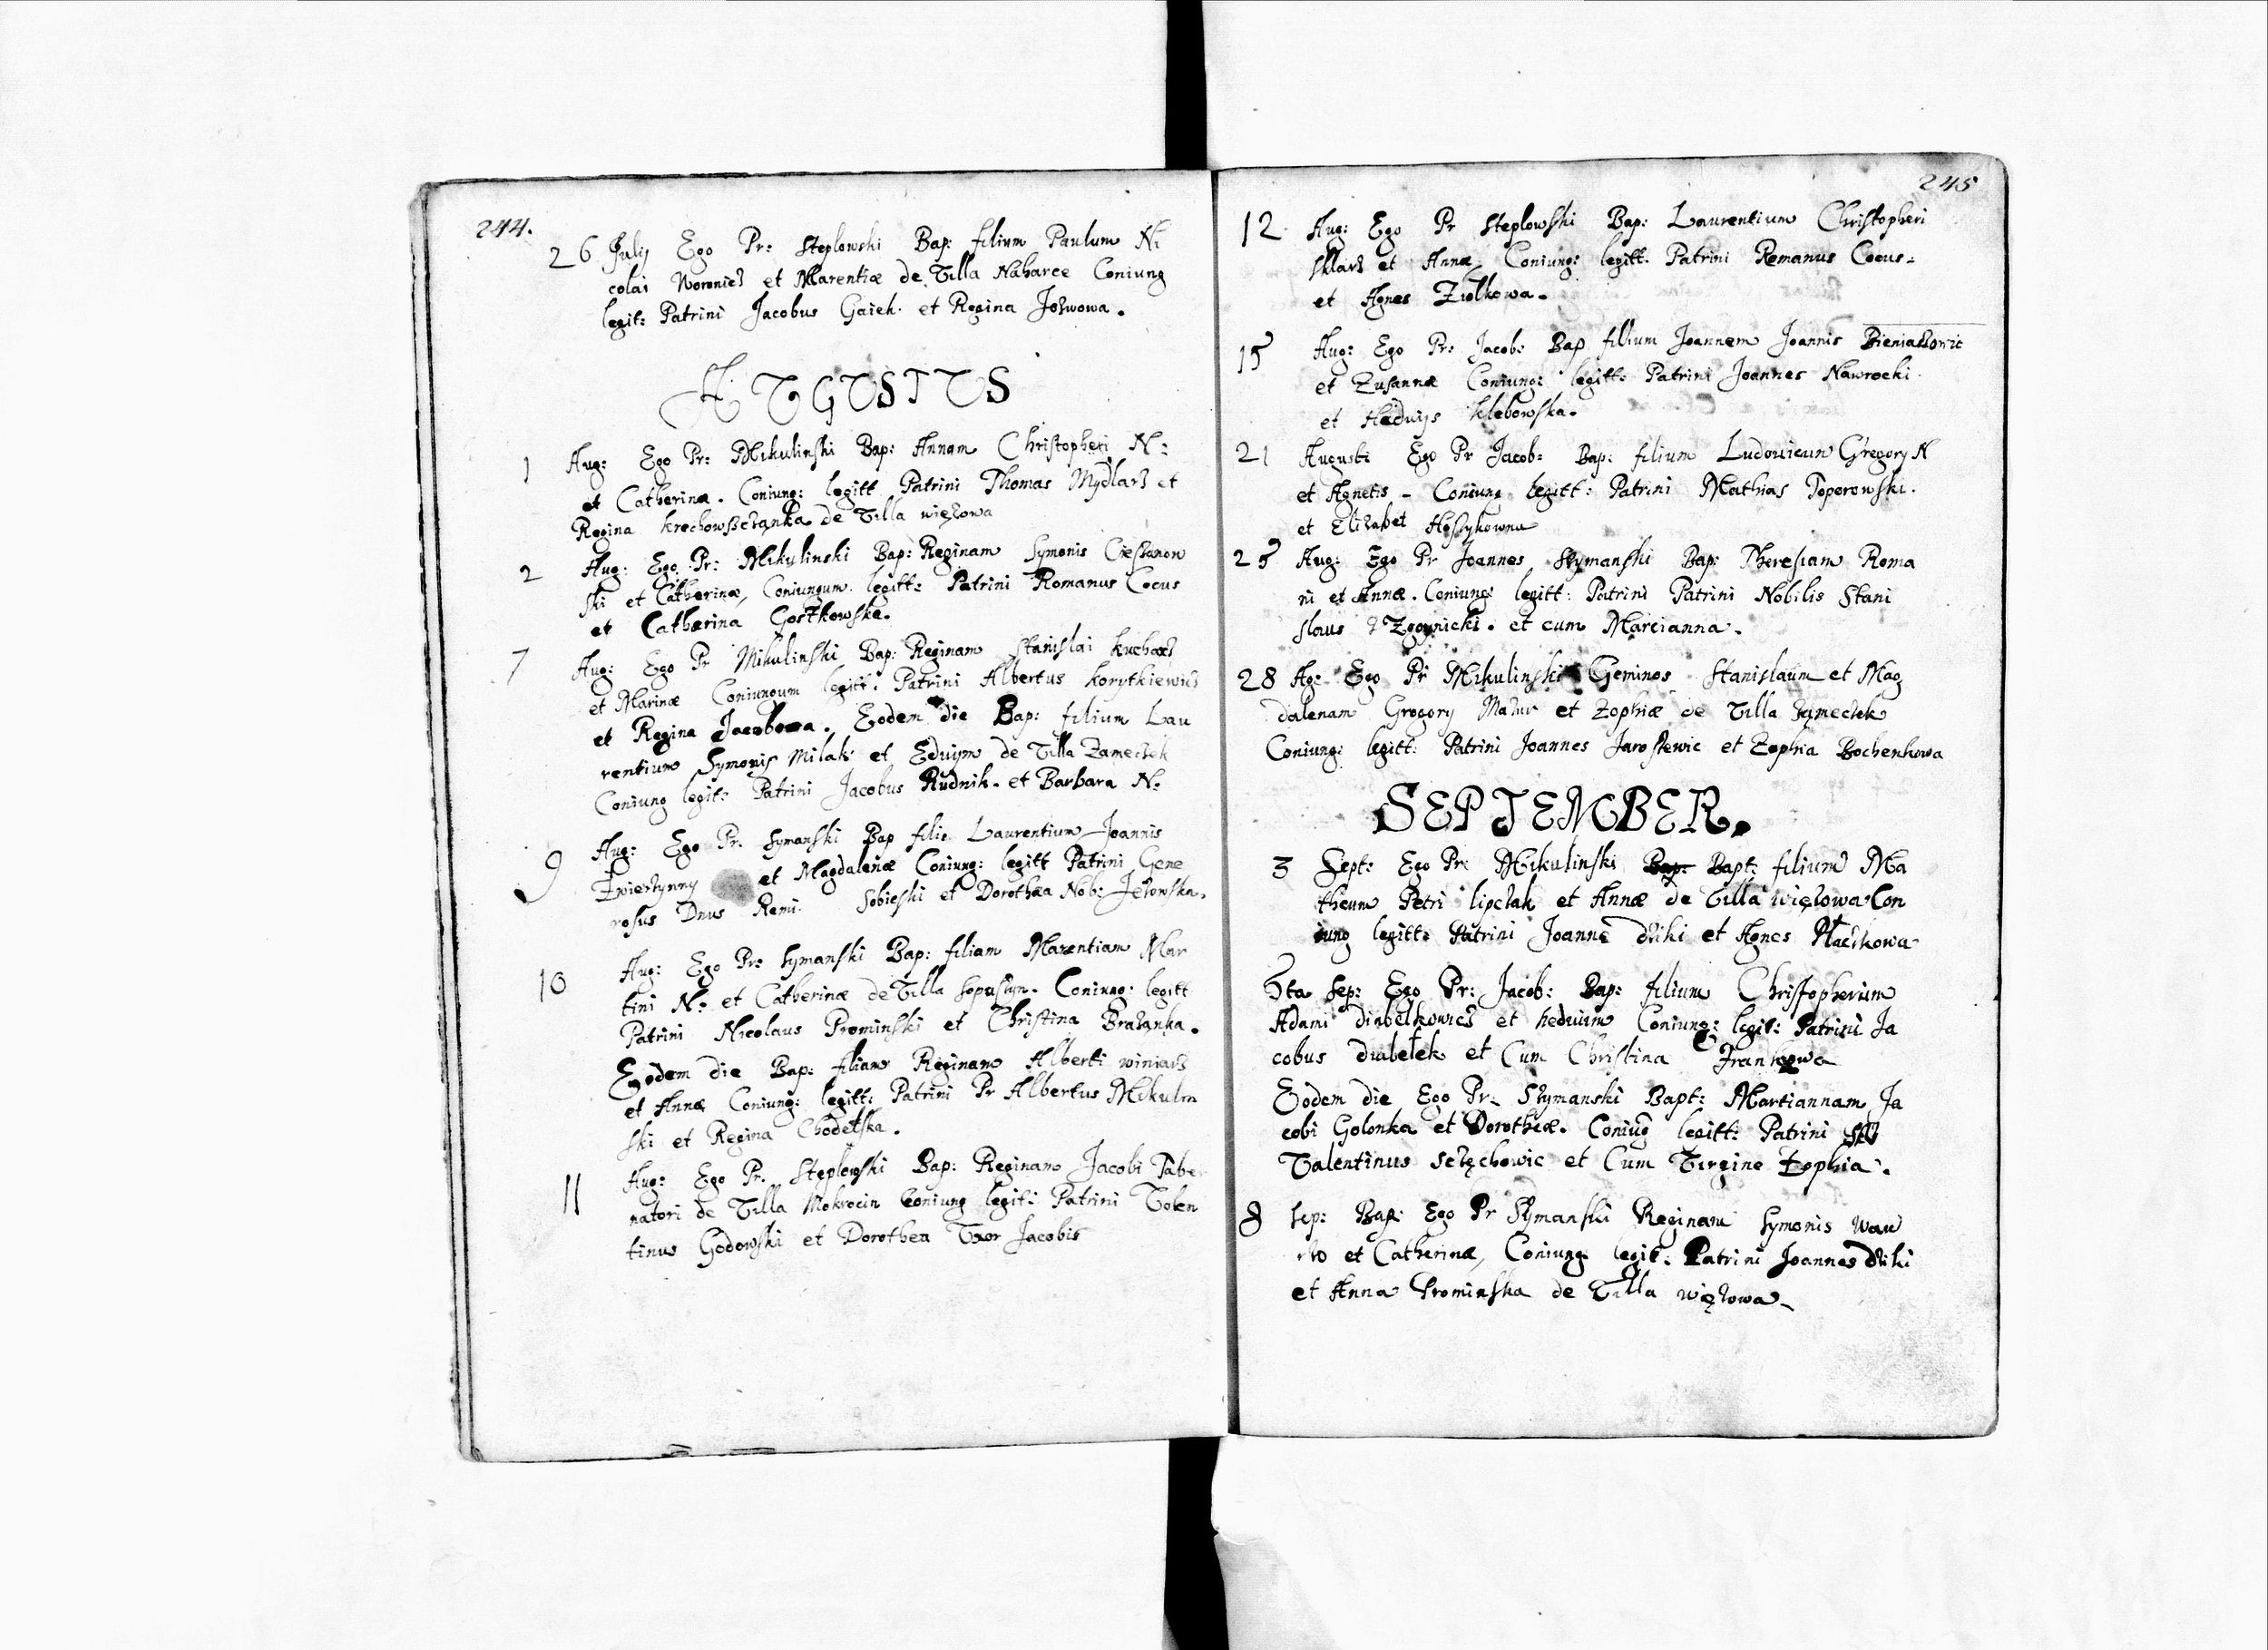 244.
26 Julij Ego Pr: Steplowski Bap: filium Paulum Ni
colai Woronicz et Marentiæ de Villa Naharce Coniung
legit: Patrini Jacobus Gaieh. et Regina Jozwowa.
AVGVSTVS
1 Aug: Ego Pr: Mikulinski Bap: Annam Christopheri N:
et Catherinæ. Coniung: legitt Patrini Thomas Mydlarz et
Regina Krechowszcząnka de Villa więzowa
2 Aug: Ego Pr: Mikulinski Bap: Reginam Symonis Cieszanow
ski et Catherinæ, Coniungum legitt: Patrini Romanus Cocus
et Catharina Gostkowska.
7 Aug: Ego Pr Mikulinski Bap: Reginam Stanislai kucharz
et Marinæ Coniungum legitt. Patrini Albertus Korytkiewicz
et Regina Jacobowa. Eodem die Bap: filium Lau
rentium Symonis Milak et Eduigm de Villa Zameczek
Coniung legit: Patrini Jacobus Rudnik. et Barbara N:
9 Aug: Ego Pr. Symanski Bap filiũ Laurentium Joannis
Zwierzynny et Magdalenæ Coniung: legitt Patrini Gene
rosus Dnus Remi. Sobieski et Dorothea Nob: Jezowska.
10 Aug: Ego Pr: Symanski Bap: filiam Marentiam Mar
tini N: et Catherinæ de Villa sopuszyn. Coniung: legitt
Patrini Nicolaus Prominski et Christina Brazanka.
Eodem die Bap: filiam Reginam Alberti winiarz
et Annæ Coniung: legitt: Patrini Pr Albertus Mikulin
ski et Regina Chodetska.
11 Aug: Ego Pr. Steplowski Bap: Reginam Jacobi Tabe
natori de Villa Mokrocin Coniung legit: Patrini Volen
tinus Godowski et Dorothea Vxor Jacobis
245
12 Aug: Ego Pr Steplowski Bap: Laurentium Christopheri
Sklarz et Annæ, Coniung: legitt. Patrini Romanus Cocus.
et Agnes Ziolkowa.
15 Aug: Ego Pr: Jacob: Bap filium Joannem Joannis Bieniaszowic
et Zusannæ Coniung: legitt: Patrini Joannes Nawrocki
et Haduigs Klebowska.
21 Augusti Ego Pr Jacob: Bap: filium Ludouicum Gregory N
et Agnetis - Coniung legitt: Patrini Mathias Toporowski.
et Elizabet
25 Aug: Ego Pr Joannes Szymanski Bap: Theresiam Roma
ni et Annæ. Coniung: legitt: Patrini Patrini Nobilis Stani
slaus Zgoynicki. et cum Marcianna.
28 Ag: Ego Pr Mikulinski Geminos Stanislaum et Mag
dalenam Gregory Mazur et Zophiæ de Villa zameczek
Coniung: legitt: Patrini Joannes Jaroszewic et Zophia Bochenkowa
SEPTEMBER.
3 Sept: Ego Pr: Mikulinski Bap: Bapt: filium Ma
theum Petri lipczak et Annæ de Villa więzowa Con
iung legitt: Patrini Joannẽ dziki et Agnes Płaczkowa
5ta Sep: Ego Pr: Jacob: Bap: filium Christopherum
Adami diabelkowicz et heduim Coniung: legit: Patrini Ja
cobus diabełek et Cum Christina Frankowa
Eodem die Ego Pr: Szymanski Bapt: Martiannam Ja
cobi Golonka et Dorotheæ. Coniug legitt: Patrini
Valentinus sczęchowic et Cum Virgine Zophia.
8 Sep: Bap: Ego Pr Szymanski Reginam Symonis Waw
rzo et Catherinæ, Coniung legit: Patrini Joannes dziki
et Anna Prominska de Villa więzowa